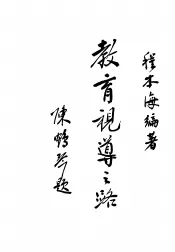 程本海編著
教育視導之路
陳鶴琴題